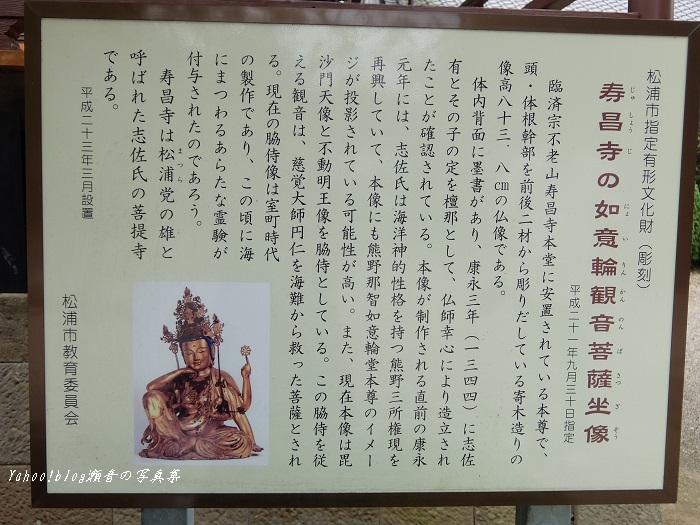 松浦市指定有形文化財（彫刻）
寿昌寺の如意輪観音菩薩坐像
じゅしょうじ にょいりんかんのんぼさつざぞう
平成二十一年九月三十日指定
臨済宗不老山寿昌寺本堂に安置されている本尊で、
頭・体根幹部を前後二材から彫りだしている寄木造りの
像高八十三．八㎝の仏像である。
体内背面に墨書があり、康永三年（一三四四）に志佐
有とその子の定を檀那として、仏師幸心により造立され
たことが確認されている。本像が制作される直前の康永
元年には、志佐氏は海洋神的性格を持つ熊野三所権現を
再興していて、本像にも熊野那智如意輪堂本尊のイメー
ジが投影されている可能性が高い。また、現在本像は毘
沙門天像と不動明王像を脇侍としている。この脇侍を従
える観音は、慈覚大師円仁を海難から救った菩薩とされ
る。現在の脇侍像は室町時代
の製作であり、この頃に海
にまつわるあらたな霊験が
付与されたのであろう。
寿昌寺は松浦党の雄と
まつら
呼ばれた志佐氏の菩提寺
である。
平成二十三年三月設置
松浦市教育委員会
Yahoo!blog瀬音の写真集